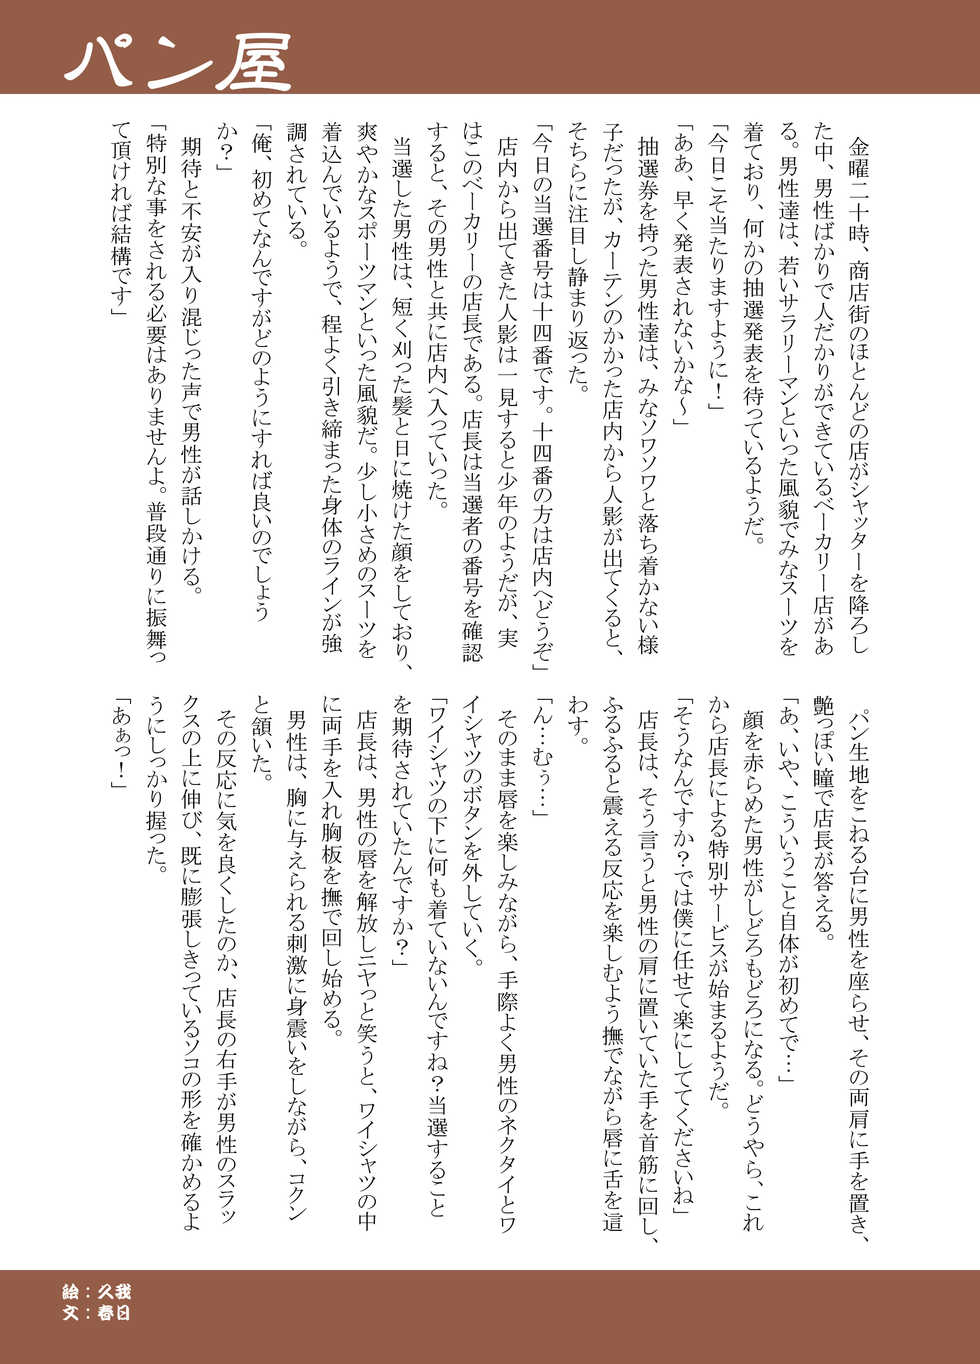 パン屋
　金曜二十時、商店街のほとんどの店がシャッターを降ろし
た中、男性ばかりで人だかりができているベーカリー店があ
る。男性達は、若いサラリーマンといった風貌でみなスーツを
着ており、何かの抽選発表を待っているようだ。
「今日こそ当たりますように！」
「ああ、早く発表されないかな～」
　抽選券を持った男性達は、みなソワソワと落ち着かない様
子だったが、カーテンのかかった店内から人影が出てくると、
そちらに注目し静まり返った。
「今日の当選番号は十四番です。十四番の方は店内へどうぞ」
　店内から出てきた人影は一見すると少年のようだが、実
はこのベーカリーの店長である。店長は当選者の番号を確認
すると、その男性と共に店内へ入っていった。
　当選した男性は、短く刈った髪と日に焼けた顔をしており、
爽やかなスポーツマンといった風貌だ。少し小さめのスーツを
着込んでいるようで、程よく引き締まった身体のラインが強
調されている。
「俺、初めてなんですがどのようにすれば良いのでしょう
か？」
　期待と不安が入り混じった声で男性が話しかける。
「特別な事をされる必要はありませんよ。普段通りに振舞っ
て頂ければ結構です」
　パン生地をこねる台に男性を座らせ、その両肩に手を置き、
艶っぽい瞳で店長が答える。
「あ、いや、こういうこと自体が初めてで…」
　顔を赤らめた男性がしどろもどろになる。どうやら、これ
から店長による特別サービスが始まるようだ。
「そうなんですか？では僕に任せて楽にしててくださいね」
　店長は、そう言うと男性の肩に置いていた手を首筋に回し、
ふるふると震える反応を楽しむよう撫でながら唇に舌を這
わす。
「ん…むぅ…」
　そのまま唇を楽しみながら、手際よく男性のネクタイとワ
イシャツのボタンを外していく。
「ワイシャツの下に何も着ていないんですね？当選すること
を期待されていたんですか？」
　店長は、男性の唇を解放しニヤっと笑うと、ワイシャツの中
に両手を入れ胸板を撫で回し始める。
　男性は、胸に与えられる刺激に身震いをしながら、コクン
と頷いた。
　その反応に気を良くしたのか、店長の右手が男性のスラッ
クスの上に伸び、既に膨張しきっているソコの形を確かめるよ
うにしっかり握った。
「あぁっ！」
絵：久我
文：春日